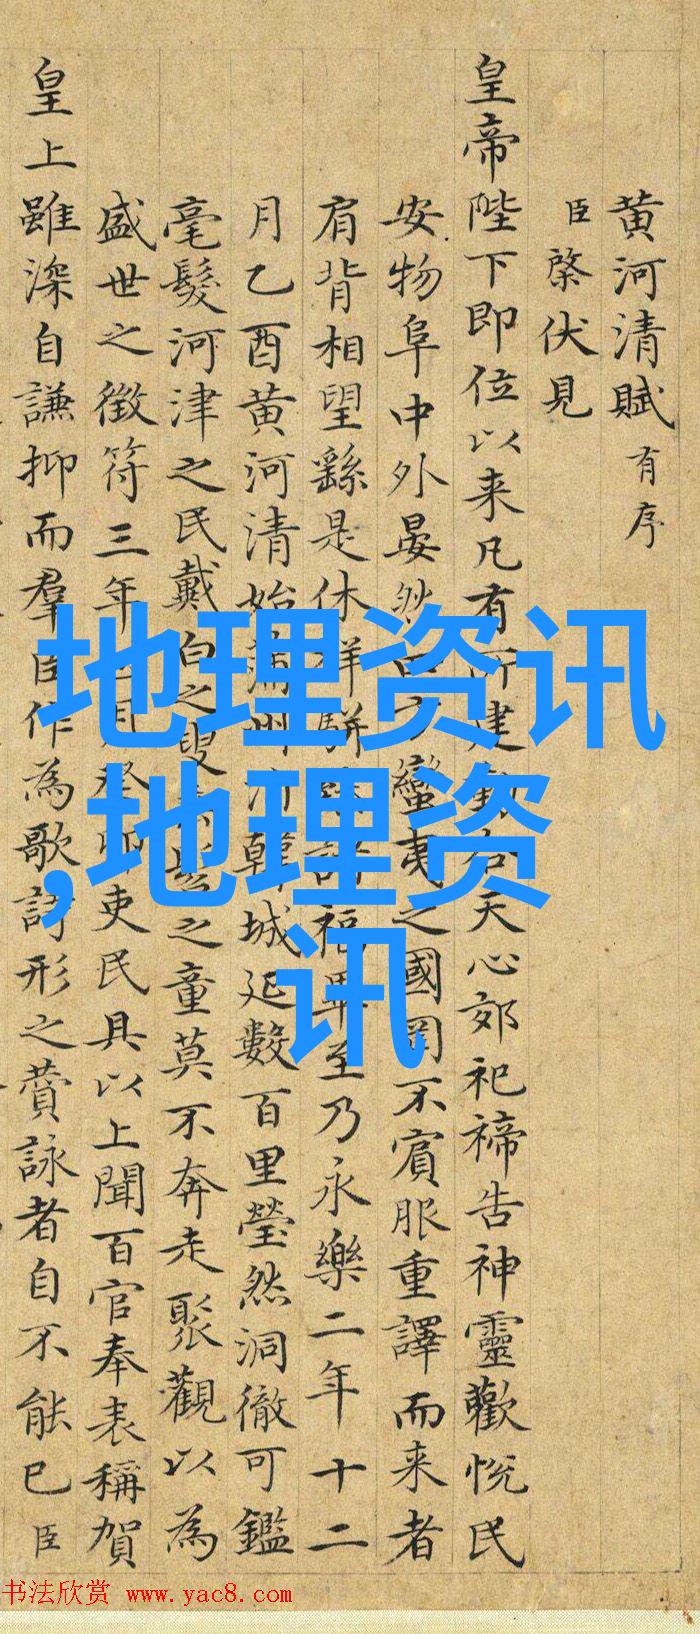 黄河清賦有序
臣棨伏見
皇帝陛下即位以来凡有所建動合天心郊祀禘告神靈歡悅民
安物阜中外晏然
蠻夷之國罔不賓服重譯而来者
肩背相望繇是休祥駢
福畢至乃永樂二年十二
月乙酉黄河清始蒲州
韓城延數百里瑩然洞徹可鑑
毫髮河津之民戴白之叟
之童莫不奔走聚觀以為
盛世之徵符三年
月癸卯吏民具以上聞百官奉表稱賀
皇上雖深自謙抑而羣臣作為歌詩形之賛詠者自不能已臣
地理资讯
,地理资
讯
书法欣赏 www.yac8.com